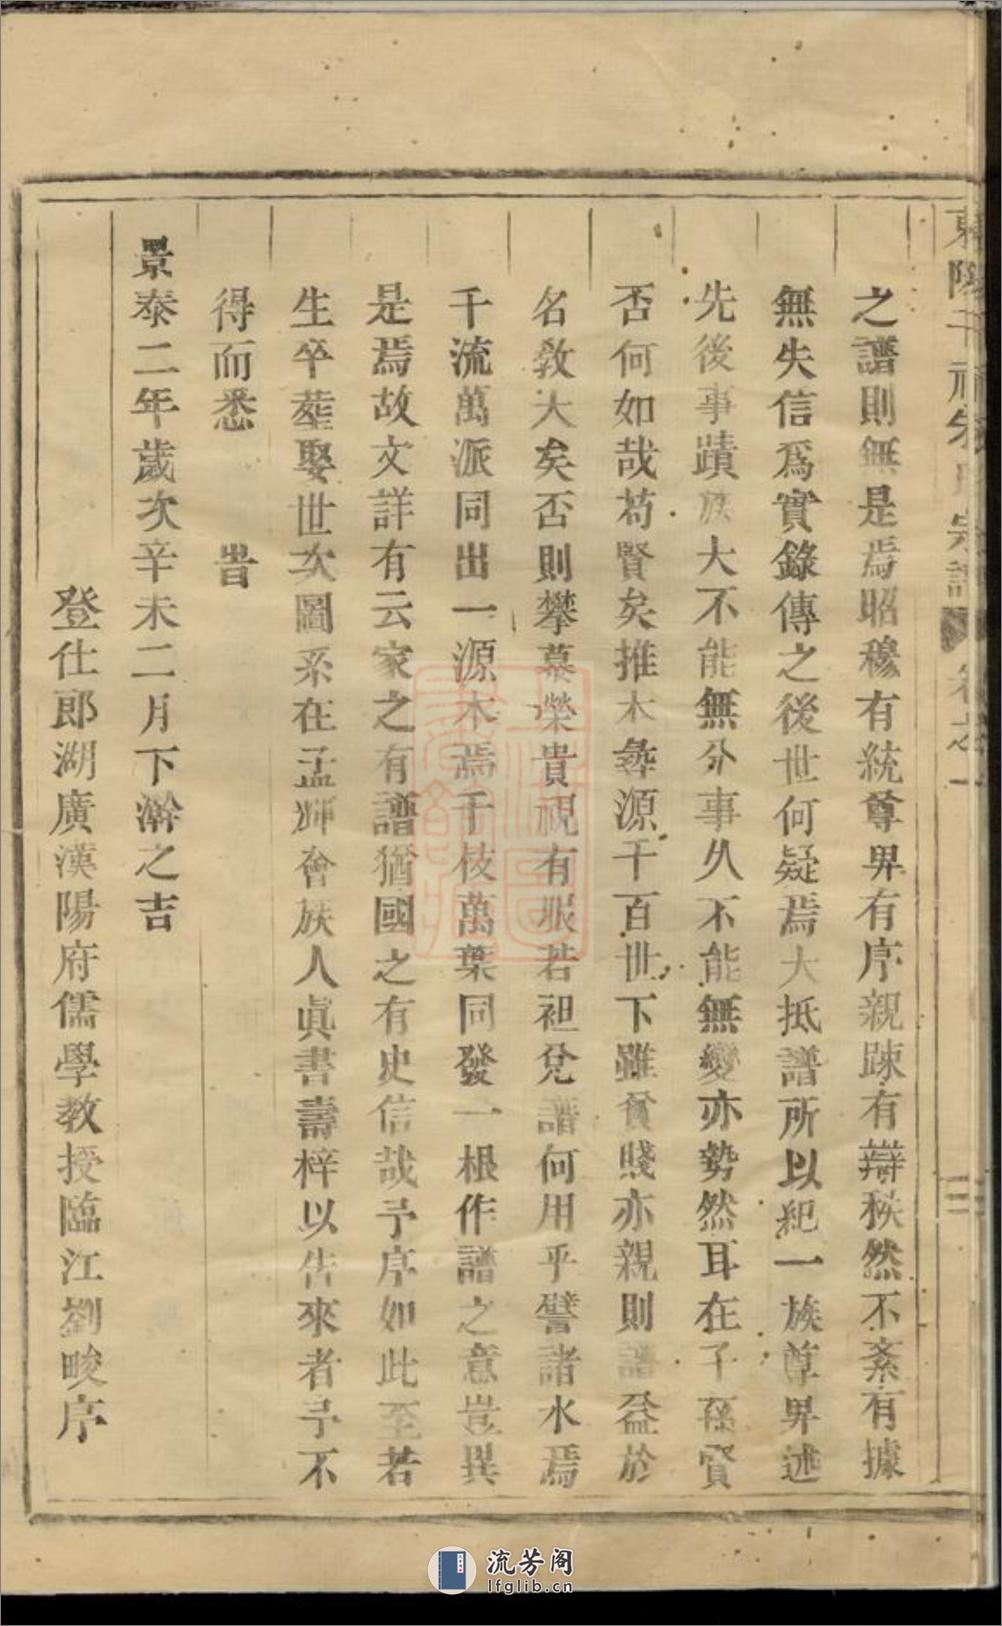 之譜則無是焉昭穆有統尊畀有序親踈有辯秩然不紊有據
無失信爲實錄傳之後世何疑焉大抵譜所以紀一族尊畀述
先後事蹟族大不能無分事久不能無變亦勢然耳在子孫賢
否何如哉苟賢矣推本彝源千百世下雖貧賤亦親則譜益於
名敎大矣否則攀慕榮貴視有服若袒免譜何用乎譬諸水焉
千流萬派同出一源木焉千枝萬葉同發一根作譜之意豈異
是焉故文詳有云家之有譜猶國之有史信哉予序如此至若
生卒塟娶世次圖系在孟輝會族人眞書壽梓以告來者予不
得而悉 旹
景泰二年歲次辛未二月下澣之吉
登仕郎湖廣漢陽府儒學教授臨江劉畯序
東陽 宗譜 卷之一
二
流芳阁
lfglib.cn